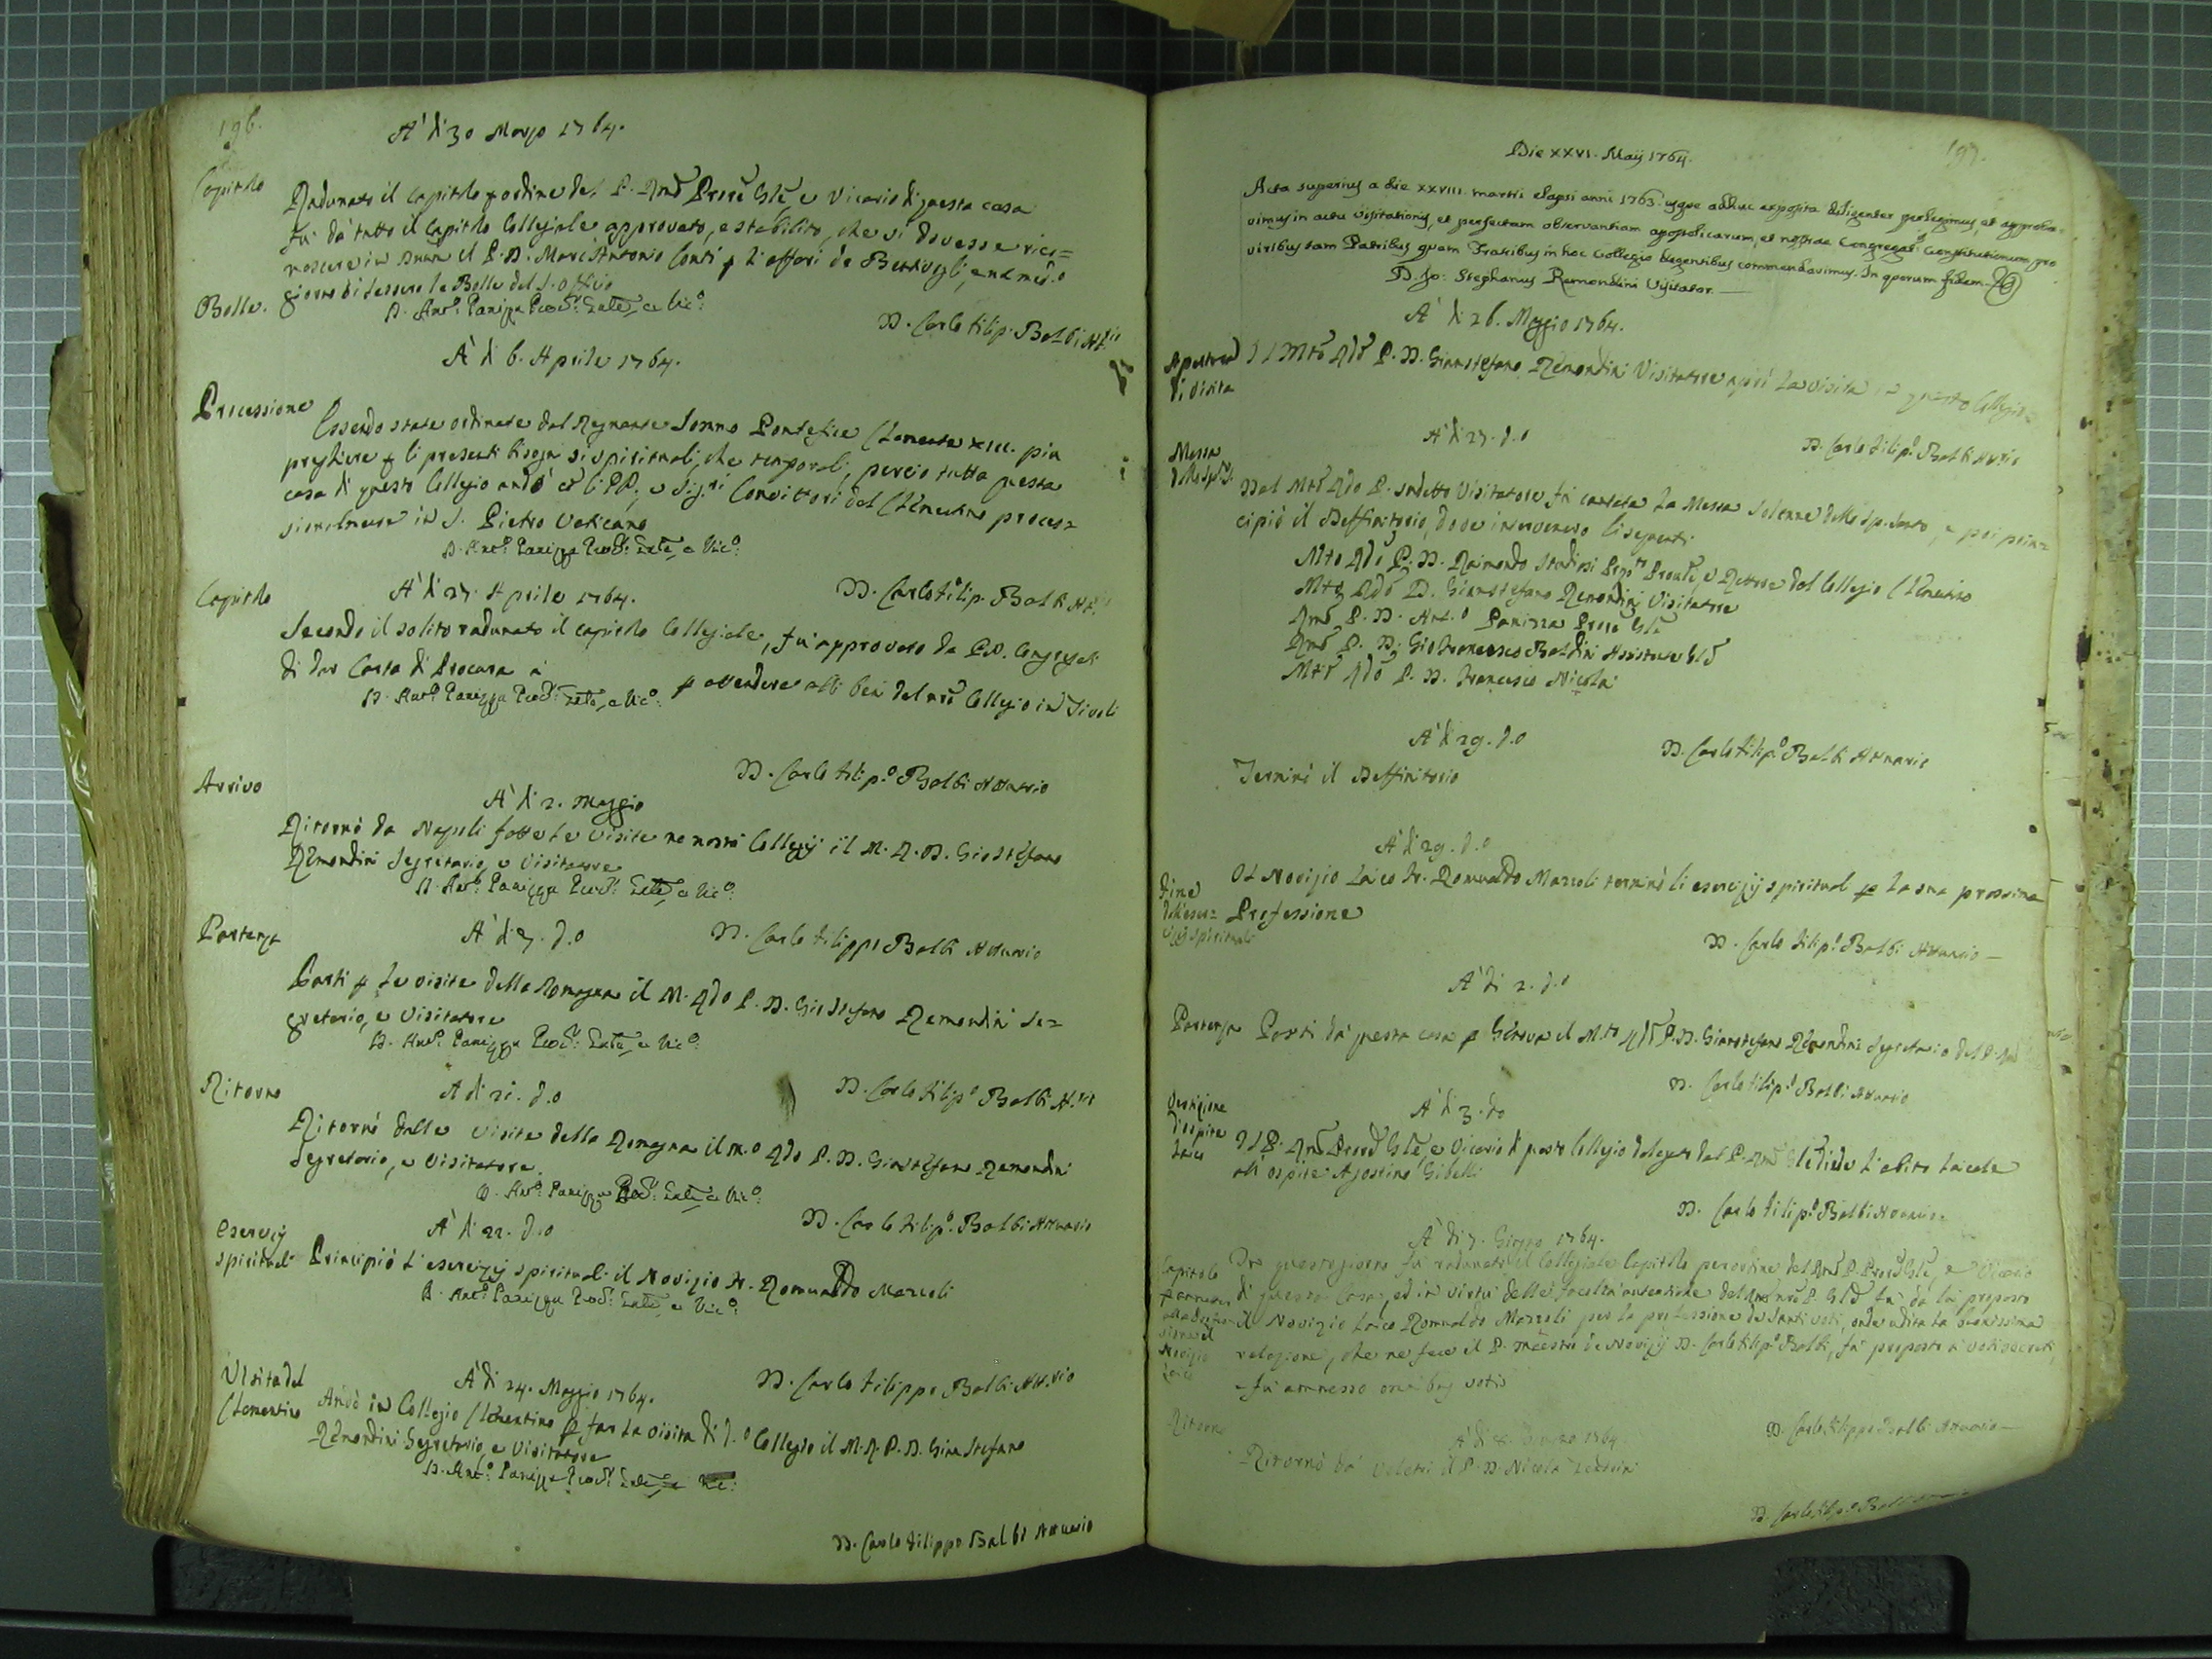 196.
A' di 30 Marzo 1764.
Capitolo
Radunato il Capitolo p ordine del P. Rmō Procrē Gñle, e Vicario di questa casa
fu' da' tutto il Capitolo Collegiale approvato, e stabilito, che si dovesse rico=
noscere in il P. D. Marc'Antonio Conti p l'affari de Bentivogli, e nel med.o
Bolle.
giorno si lessero le Bolle del S. Offizio
D. Ant.o Panizza Procr. Gnle, e Vic.o
D. Carlo Filip. Balbi Att.rio
A' di 6. Aprile 1764.
Processione
Essendo state ordinate dal Regnante Sommo Pontefice Clemente XIII. pia
preghiere p li presenti bisogni si spirituali, che temporali, perciò tutta questa
casa di questo Collegio andò cō li PP., e Sig.ri Convittori del Clemtino proces=
sionalmente in S. Pietro Vaticano
D. Ant.o Panizza Procr. Gnle, e Vic.o
D. Carlo Filip.o Balbi Att.rio
Capitolo
A' di 27. Aprile 1764.
Secondo il solito radunato il capitolo Collegiale, fu' approvato da PP. Congregati
di dar Carta di Procura a
p attendere alli beni del nrō Collegio in Tivoli
D. Ant.o Panizza Procr. Gnle, e Vic.o
D. Carlo Filip.o Balbi Attuario
Arrivo
A' di 2. Maggio
Ritornò da Napoli fatte le visite ne nostri Collegij il M. R. D. Gio Stefano
Remondini Segretario, e Visitatore
D. Ant.o Panizza Procr. Gnle, e Vic.o
D. Carlo Filippo Balbi Attuario
Partenza
A' di 7. d.o
Partì p le visite della Romagna il M. Rdo P. D. Gio Stefano Remondini Se=
gretario, e Visitatore
D. Ant.o Panizza Procr. Gnle, e Vic.o
D. Carlo Filip.o Balbi Att.rio
Ritorno
A di 21. d.o
Ritornò dalle visite della Romagna il m.o Rdo P. D. Gio Stefano Remondini
Segretario, e Visitatore.
D. Ant.o Panizza Procr. Gnle, e Vic.o
D. Carlo Filip.o Balbi Attuario
A' di 22. d.o
Esercizij
spirituali
Principiò l'esercizij spirituali il Novizio fr. Romualdo Marzoli
D. Ant.o Panizza Procr. Gnle, e Vic.o
D. Carlo Filippo Balbi Att.rio
Visita del
Clementino
A' di 24. Maggio 1764.
Andò in Collegio Clementino p far la visita di d.o Collegio il M. R. P. D. Gian Stefano
Remondini Segretario, e Visitatore
D. Ant.o Panizza Procr. Gnle, e Vic.o
D. Carlo Filippo Balbi Attuario
197.
Die XXVI. Maij 1764.
Acta superius a die XXVIII. martii elapsi anni 1763. usque adhuc exposita diligenter perlegimus, et approba=
vimus in actu visitationis, et perfectam observantiam apostolicarum, et nostrae Congregat. Constitutionum pro
viribus tam Patribus quam Fratribus in hoc Collegio degentibus commendavimus. In quorum fidem.
D. Jo: Stephanus Remondini Visitator.
A' di 26. Maggio 1764.
Apertura
di visita
Il Mtō Rdō P. D. Gianstefano Remondini Visitatore aprì la visita in questo Collegio
D. Carlo Filip.o Balbi Att.rio
A' di 27. d.o
Messa
dello Sp.S.
Dal Mtō Rdo P. sudetto Visitatore fu' cantata la Messa solenne dello Sp. Santo, e poi prin=
cipiò il Deffinitorio, dove intervenero li seguenti
Mto Rdō P. D. Raimondo Studiosi Prep.to Provle, e Rettore del Collegio Clemtino
Mto Rdō D. Gianstefano Remondini Visitatore
Rmō P. D. Ant.o Panizza Procr Gñle
Rmō P. D. Gio Francesco Baldini Assistente Gle
Mtō Rdō P. D. Francesco Nicolai
D. Carlo Filip.o Balbi Attuario
A' di 29. d.o
Terminò il Deffinitorio
A' di 29. d.o
Fine
dell'eser=
cizij spirituali
Il Novizio Laico fr. Romualdo Marzoli terminò li esercizij spirituali p la sua prossima
Professione
D. Carlo Filip.o Balbi Attuario
A' di 2. d.o
Partenza
Partì da' questa casa p Genova il M.to Rdō P. D. Gianstefano Remondini Segretario del P.
D. Carlo Filip.o Balbi Attuario
A' di 3. do
Vestizione
d'ospite
Laico
Il P. Rmō Procrē Gñle, e Vicario di questo Collegio delegato dal P. Rmō Gle diede l'abito Laicale
all'ospite Agostino Gibelli
D. Carlo Filip.o Balbi Attuario
A' di 7. Giugno 1764.
Capitolo
alla Profes=
sione il
Novizio
Laico
In questo giorno fu' radunato il Collegiale Capitolo per ordine del Rmō P. Procrē Gñle, e Vicario
di questa Casa, ed in virtù delle facoltà del nrō P. Gle fu' da lui proposto
il Novizio Laico Romualdo Marzoli per la professione de santi voti, onde udita la buonissima
relazione, che ne fece il P. Maestro de Novizij D. Carlo Filip.o Balbi, fu' proposto a voti secreti,
e fu' ammesso omnibus votis
D. Carlo Filippo Balbi Attuario
Ritorno
Giugno 1764.
Ritornò da' Veletri il P. D. Nicola
D. Carlo Filip.o Balbi